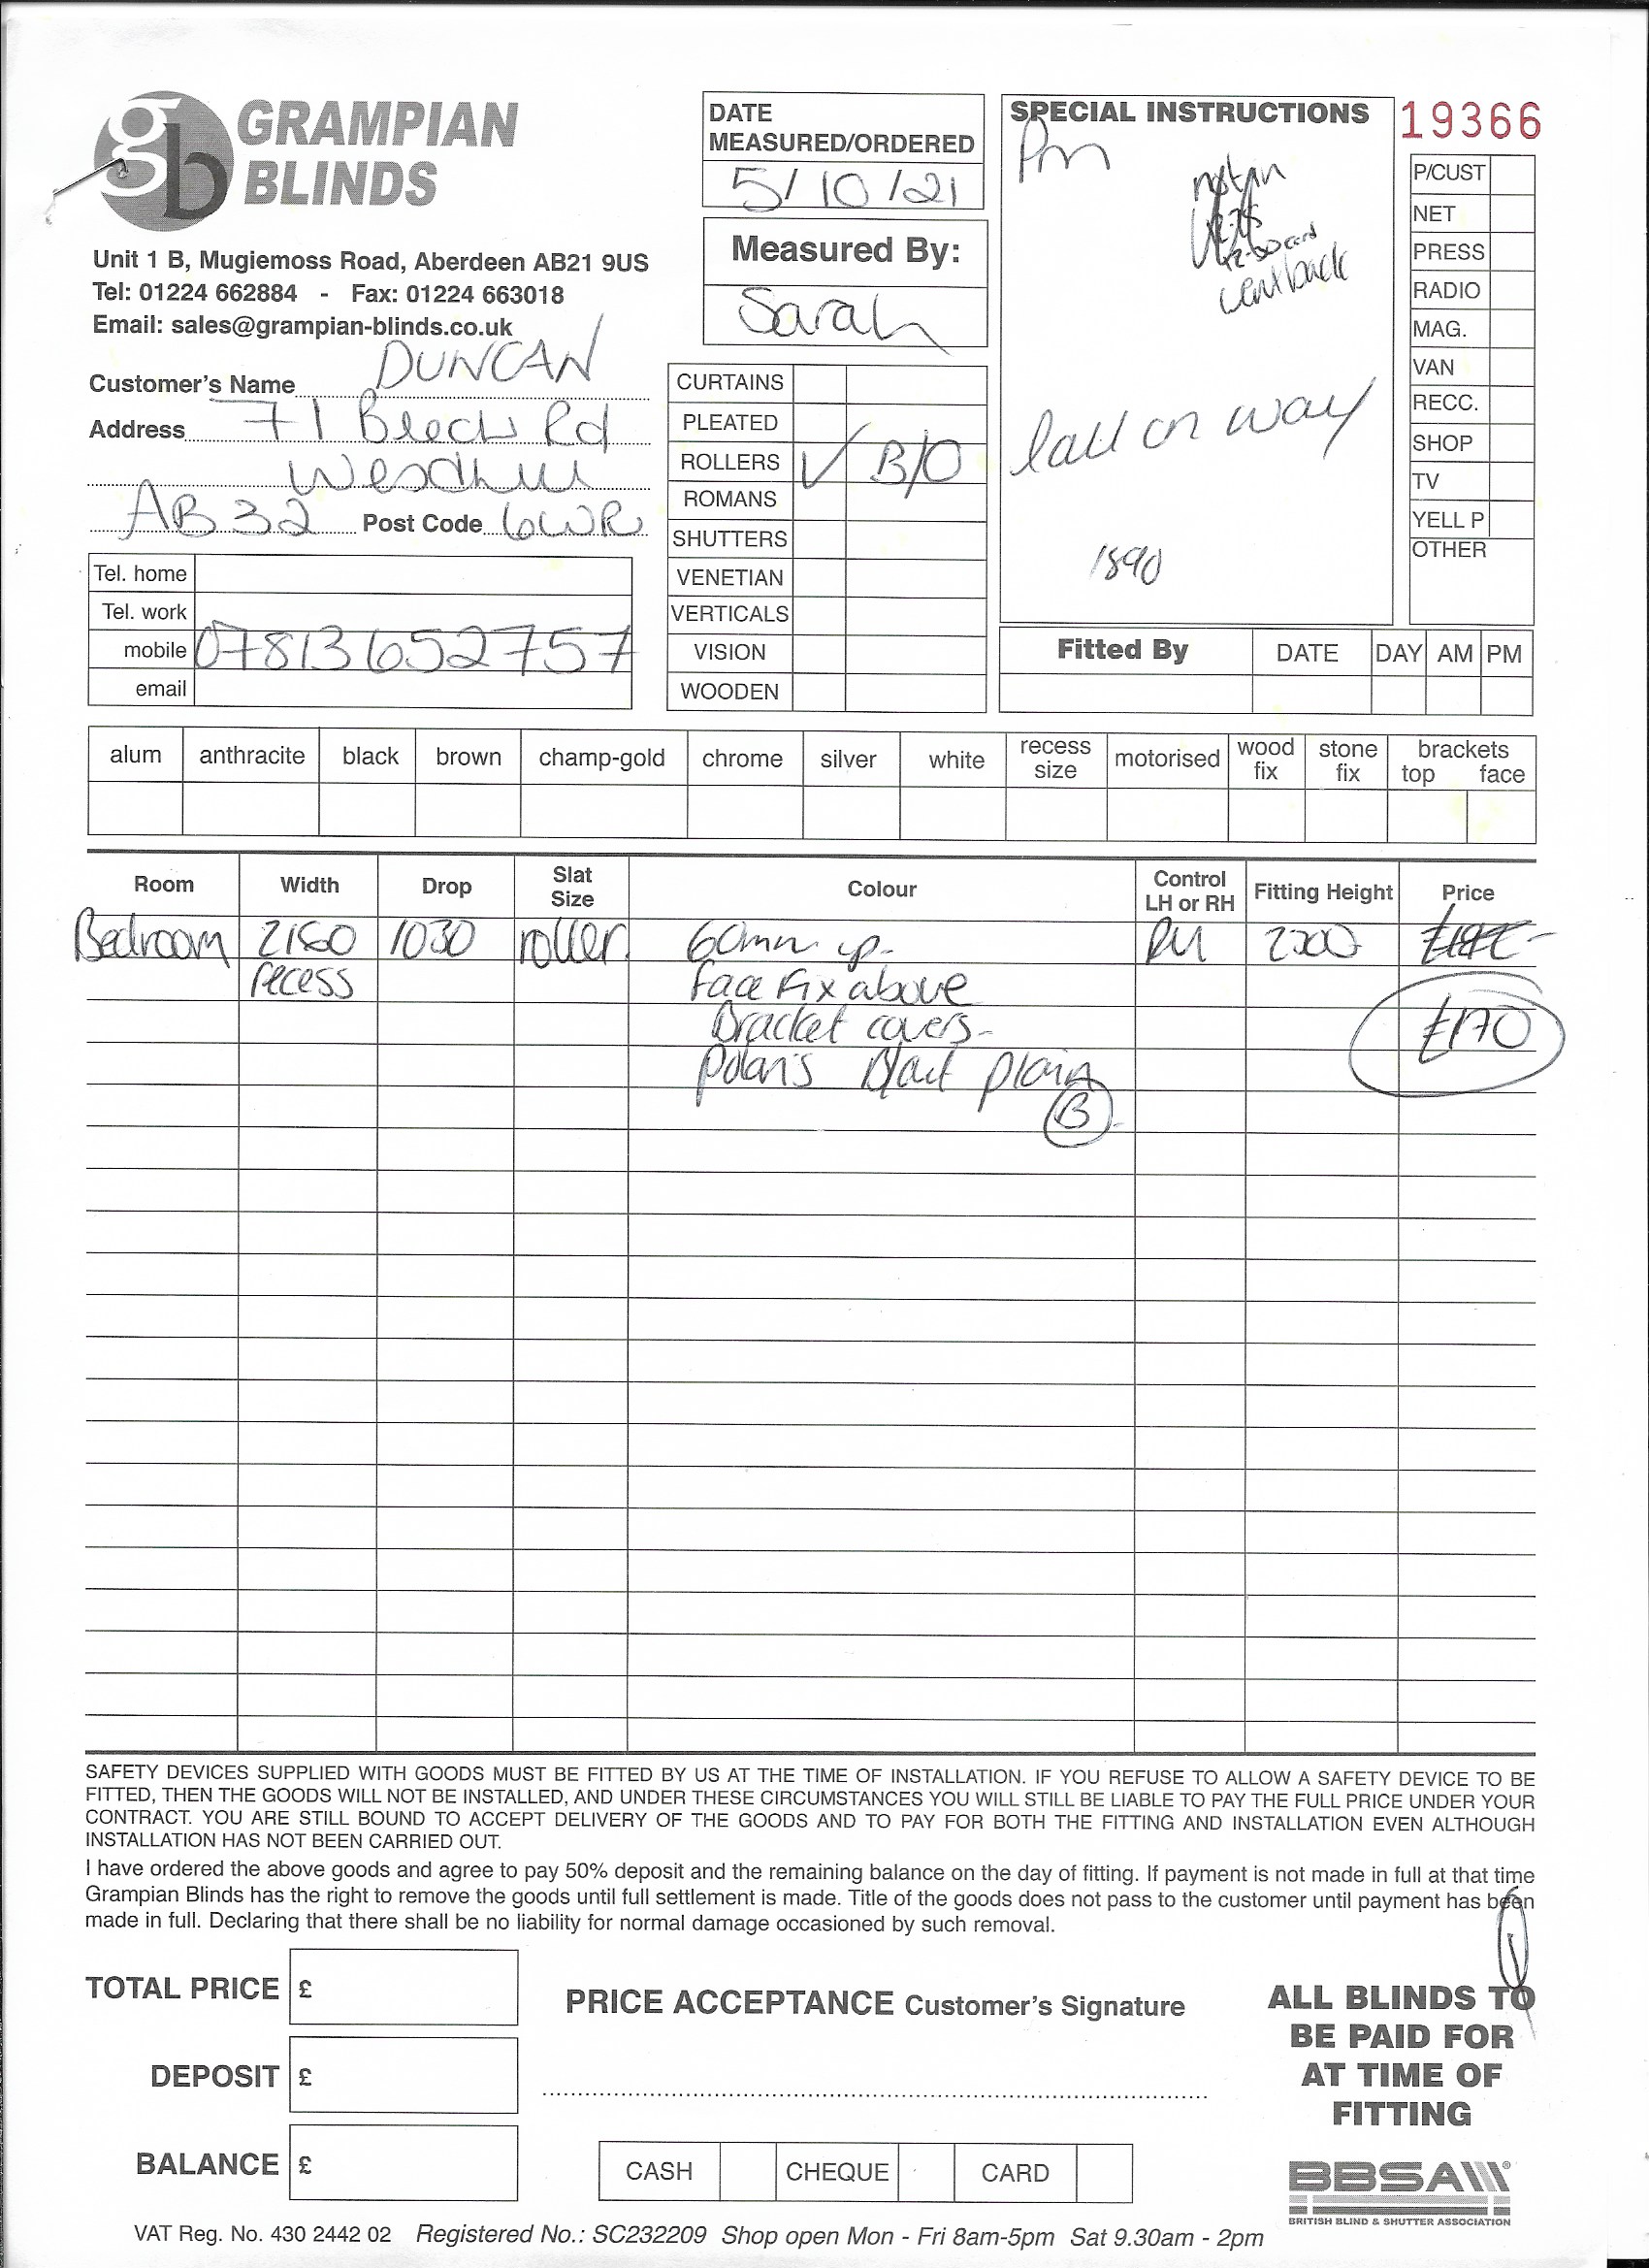 GRAMPIAN
BLINDS
gb
Unit 1 B, Mugiemoss Road, Aberdeen AB21 9US
Tel: 01224 662884 - Fax: 01224 663018
Email: sales@grampian-blinds.co.uk
Customer's Name DUNCAN
Address 71 Beech Rd
Westhill
AB32 Post Code 6WR
Tel. home
Tel. work
mobile 07813652757
email
DATE
MEASURED/ORDERED
5/10/21
Measured By:
Sarah
CURTAINS
PLEATED
ROLLERS ✓ B/O
ROMANS
SHUTTERS
VENETIAN
VERTICALS
VISION
WOODEN
SPECIAL INSTRUCTIONS
Pm
call on way
1890
19366
P/CUST
NET
PRESS
RADIO
MAG.
VAN
RECC.
SHOP
TV
YELL P
OTHER
Fitted By DATE DAY AM PM
alum anthracite black brown champ-gold chrome silver white recess size motorised wood fix stone fix brackets top face
Room Width Drop Slat Size Colour Control LH or RH Fitting Height Price
Bedroom 2160 1030 roller 60mm up- RH 2200
recess Face Fix above
Bracket covers- £170
Polaris Black plain
B
SAFETY DEVICES SUPPLIED WITH GOODS MUST BE FITTED BY US AT THE TIME OF INSTALLATION. IF YOU REFUSE TO ALLOW A SAFETY DEVICE TO BE
FITTED, THEN THE GOODS WILL NOT BE INSTALLED, AND UNDER THESE CIRCUMSTANCES YOU WILL STILL BE LIABLE TO PAY THE FULL PRICE UNDER YOUR
CONTRACT. YOU ARE STILL BOUND TO ACCEPT DELIVERY OF THE GOODS AND TO PAY FOR BOTH THE FITTING AND INSTALLATION EVEN ALTHOUGH
INSTALLATION HAS NOT BEEN CARRIED OUT.
I have ordered the above goods and agree to pay 50% deposit and the remaining balance on the day of fitting. If payment is not made in full at that time
Grampian Blinds has the right to remove the goods until full settlement is made. Title of the goods does not pass to the customer until payment has been
made in full. Declaring that there shall be no liability for normal damage occasioned by such removal.
TOTAL PRICE £
DEPOSIT £
BALANCE £
PRICE ACCEPTANCE Customer's Signature
CASH CHEQUE CARD
ALL BLINDS TO
BE PAID FOR
AT TIME OF
FITTING
BBSA
BRITISH BLIND & SHUTTER ASSOCIATION
VAT Reg. No. 430 2442 02 Registered No.: SC232209 Shop open Mon - Fri 8am-5pm Sat 9.30am - 2pm